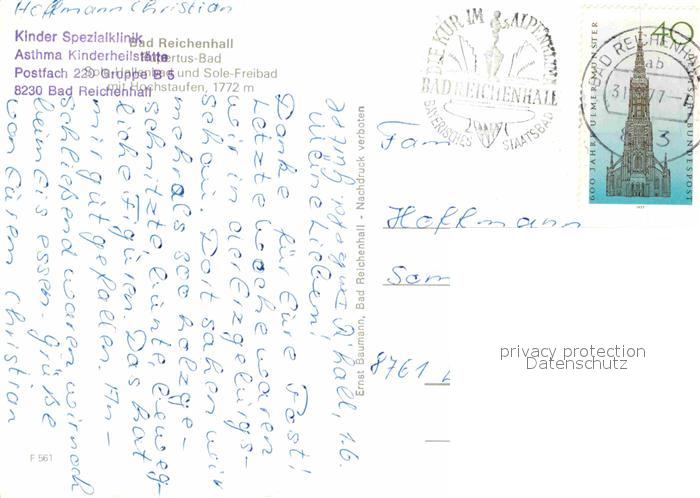 Hoffmann Christian
Kinder Spezialklinik
Asthma Kinderheilstätte
Postfach 220 Gruppe B 5
8230 Bad Reichenhall
Bad Reichenhall
Hubertus-Bad
Sole-Hallenbad und Sole-Freibad
mit Hochstaufen, 1772 m
R'hall, 1.6.
Meine Lieben!
Danke für Eure Post!
Letzte Woche waren
wir in der Erzgebirgs-
schau. Dort sahen wir
mehr als 300 holzge-
schnitzte, bunte, beweg-
liche Figuren. Das hat
mir gut gefallen. An-
schließend waren wir noch
beim Eis essen. Grüße
von Eurem Christian
F 561
Ernst Baumann, Bad Reichenhall - Nachdruck verboten
DIE KUR IM ALPENKLIMA
BAD REICHENHALL
BAYERISCHES STAATSBAD
BAD REICHENHALL
ab
8230
40
600 JAHRE ULMER MÜNSTER
DEUTSCHE BUNDESPOST
1977
Fam
Hoffmann
Som
8761
privacy protection
Datenschutz